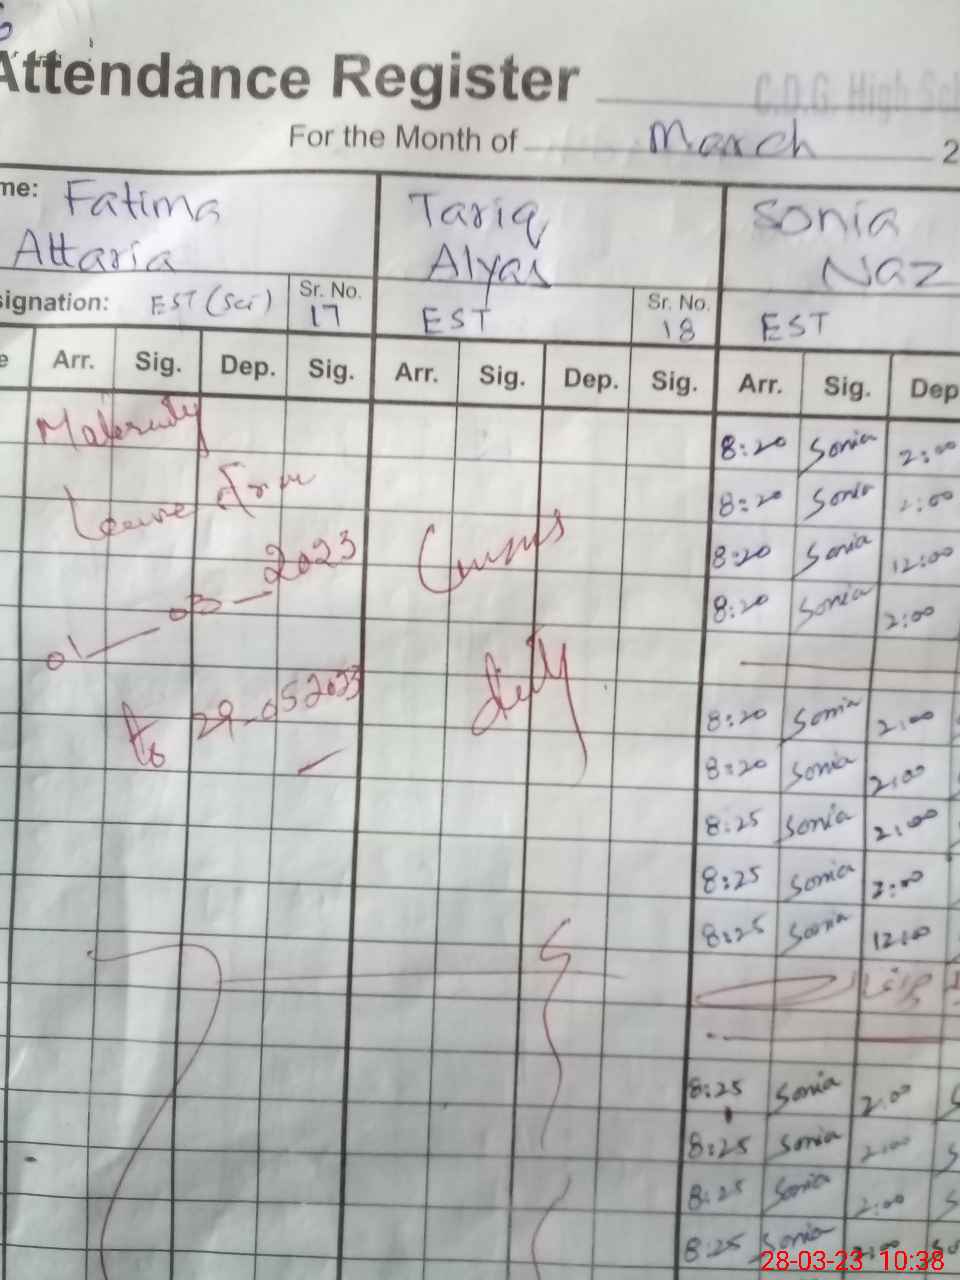 Attendance Register
C.D.G. High Sch
For the Month of March 2
me: Fatima Attaria
Tariq Alyas
Sonia Naz
signation: EST (Sci) Sr. No. 17
EST Sr. No. 18
EST
e Arr. Sig. Dep. Sig. Arr. Sig. Dep. Sig. Arr. Sig. Dep
Maternity
Leave from
01-03-2023
to 29-05 2023
duty
8:20 Sonia 2:00
8:20 Sonia 2:00
8:20 Sonia 12:00
8:20 Sonia 2:00
8:20 Sonia 2:00
8:20 Sonia 2:00
8:25 Sonia 2:00
8:25 Sonia 2:00
8:25 Sonia 12:00
8:25 Sonia 2:00
8:25 Sonia 2:00
8:25 Sonia 2:00
8:25 Sonia 2:00
28-03-23 10:38